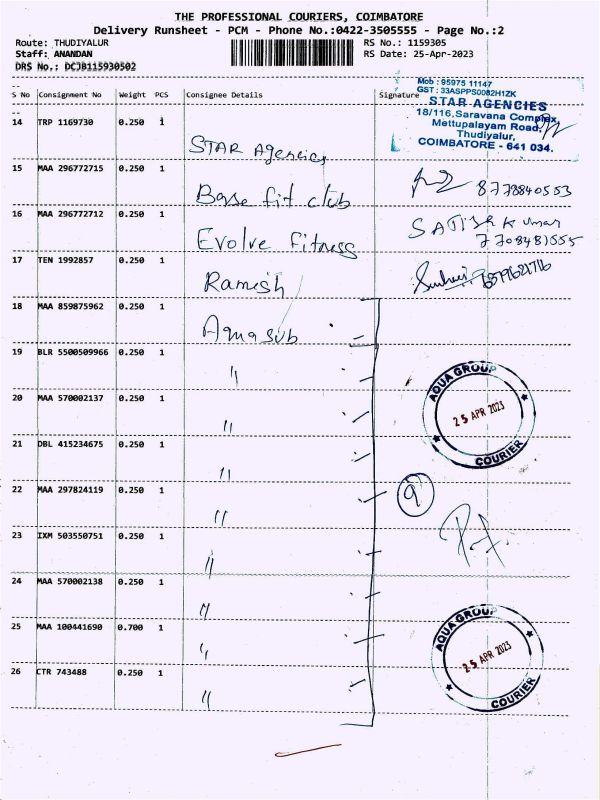 THE PROFESSIONAL COURIERS, COIMBATORE
Delivery Runsheet - PCM - Phone No.:0422-3505555 - Page No.:2
Route: THUDIYALUR RS No.: 1159305
Staff: ANANDAN RS Date: 25-Apr-2023
DRS No.: DCJB115930502
Mob : 95975 11147
GST : 33ASPPS0082H1ZK
STAR AGENCIES
18/116,Saravana Complex,
Mettupalayam Road,
Thudiyalur,
COIMBATORE - 641 034.
--
S No Consignment No Weight PCS Consignee Details Signature
--
14 TRP 1169730 0.250 1
STAR Agencies
15 MAA 296772715 0.250 1
Base fit club 8778840553
16 MAA 296772712 0.250 1
Evolve Fitness SATISH KUMAR
7708481555
17 TEN 1992857 0.250 1
Ramesh
18 MAA 859875962 0.250 1
Aquasub
19 BLR 5500509966 0.250 1
"
20 MAA 570002137 0.250 1
"
AQUA GROUP
25 APR 2023
COURIER
21 DBL 415234675 0.250 1
"
22 MAA 297824119 0.250 1
" 9
23 IXM 503550751 0.250 1
"
24 MAA 570002138 0.250 1
"
25 MAA 100441690 0.700 1
"
26 CTR 743488 0.250 1
"
AQUA GROUP
25 APR 2023
COURIER